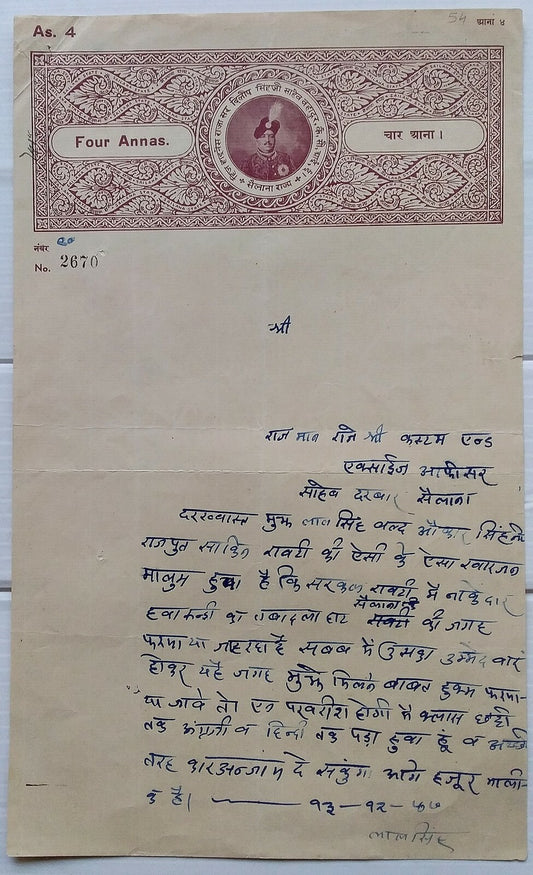 54
As. 4
आना ४
Four Annas.
चार आना।
दिलीप सिंहजी साहेब बहादुर के. सी. आई. ई.
सैलाना राज्य
नंबर
No. 2670
श्री
राज मान राजे श्री कस्टम एन्ड
एक्साईज आफीसर
साहेब दरबार सैलाना
दरख्वास्त मुझ लाल सिंह वल्द ओंकार सिंह
राजपुत साकिन रावटी की ऐसी के ऐसा
मालुम हुवा है कि सरकल रावटी में नाकेदार
सैलाना
का तबादला की जगह
फरमाया जा रहा है सबब में उसका उम्मेदवार
होकर यह जगह मुझे मिलने बाबत हुकम फरमा-
या जावे तो परवरीश होगी में क्लास छटी
तक अंग्रेजी व हिन्दी तक पड़ा हुवा हूं व
तरह कारअन्जाम दे सकुंगा आगे हजूर माली-
क है। १३-१२-४७
लालसिंह